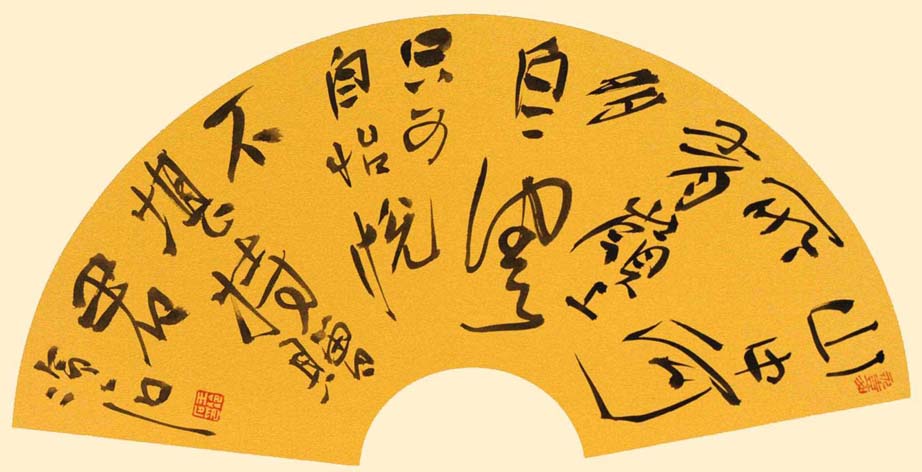 山中何
所有嶺上
多白雲
只可
自怡悦
不堪持贈
君